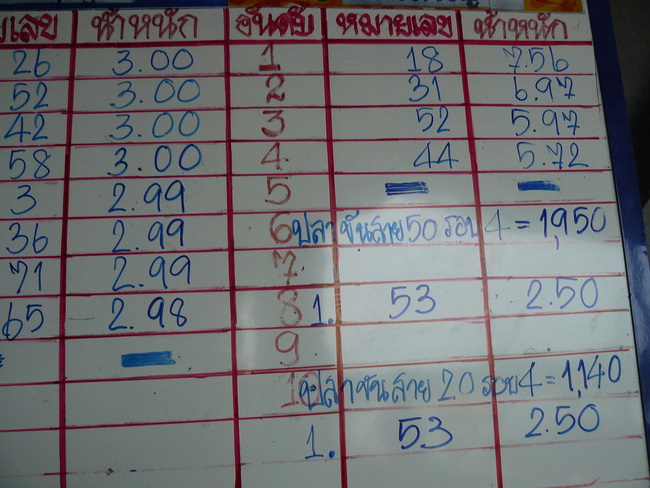 น้ำหนัก อันดับ หมายเลข น้ำหนัก
26 3.00 1 18 7.56
52 3.00 2 31 6.97
42 3.00 3 52 5.97
58 3.00 4 44 5.72
3 2.99 5
36 2.99 6 ปลา ขันสาย 50 รอบ 4 = 1,950
71 2.99 7
65 2.98 8 1. 53 2.50
9
10 ปลาขันสาย 20 รอบ 4 = 1,140
1. 53 2.50